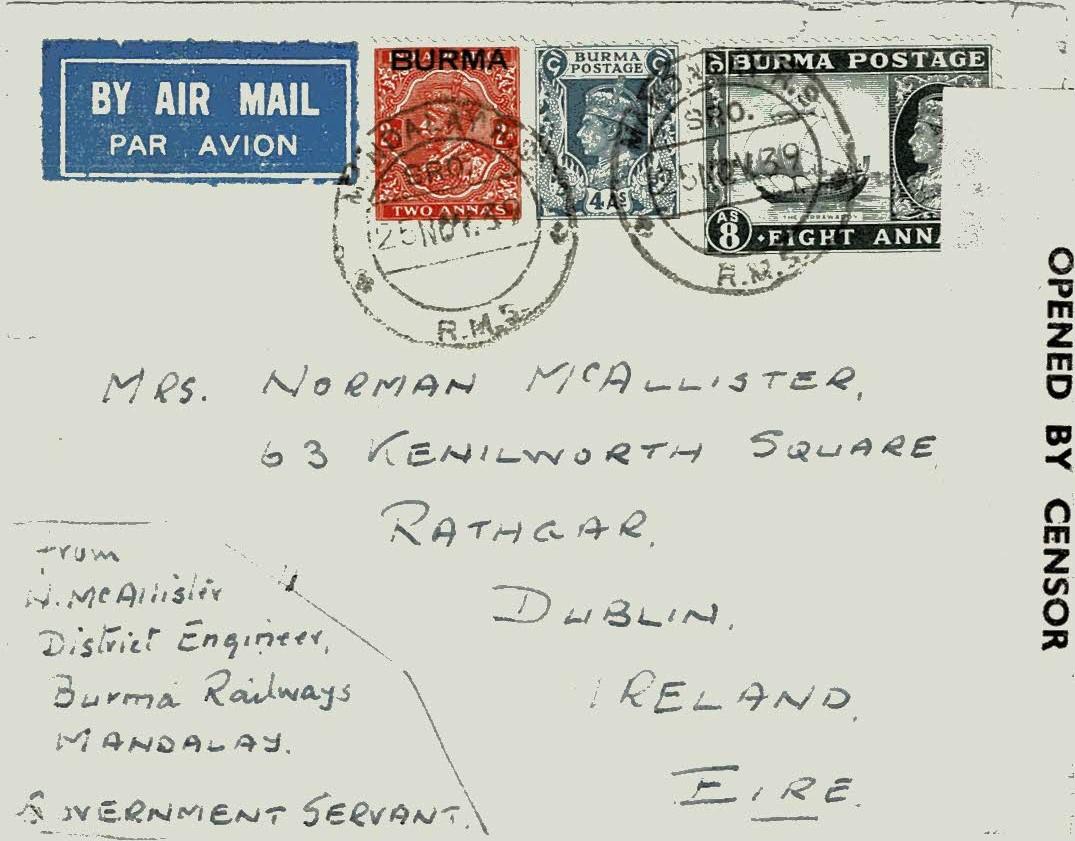 BY AIR MAIL
PAR AVION
BURMA
2As 2As
TWO ANNAS
BURMA
POSTAGE
4 As
BURMA POSTAGE
AS
8
EIGHT ANN
MANDALAY
SRO.
25 NOV. 39
R.M.S.
SRO.
25 NOV. 39
R.M.S.
OPENED BY CENSOR
MRS. NORMAN MCALLISTER,
63 KENILWORTH SQUARE
RATHGAR,
DUBLIN,
IRELAND,
EIRE.
From
N. McAllister
District Engineer,
Burma Railways
MANDALAY.
GOVERNMENT SERVANT.